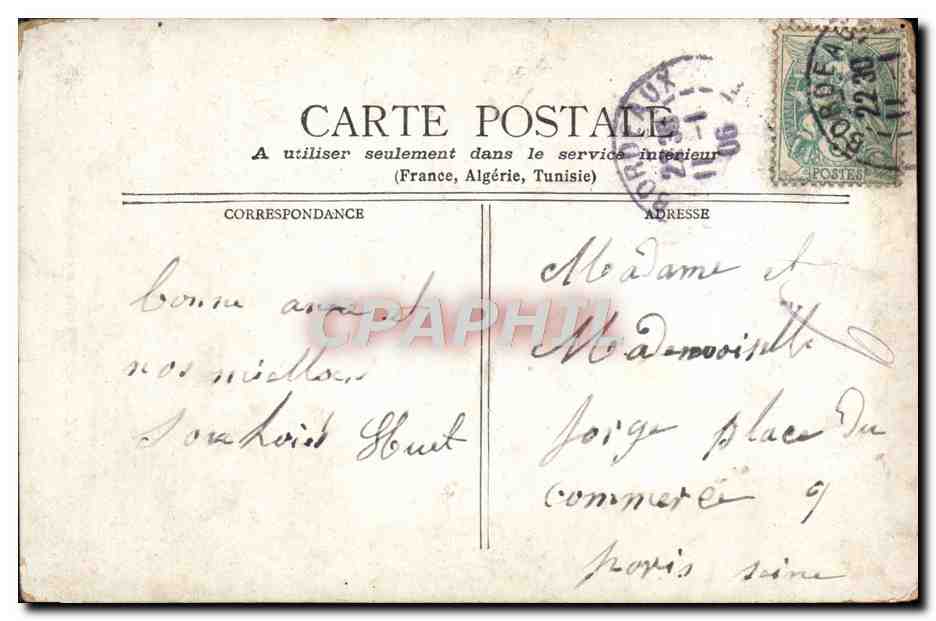 CARTE POSTALE
A utiliser seulement dans le service intérieur
(France, Algérie, Tunisie)
BORDEAUX
22 30
11 -1
06
BORDEA
22 30
11
POSTES
CORRESPONDANCE
bonne anné et
nos meilleurs
Souhois Huet
ADRESSE
Madame et
Mademoiselle
forge place Du
commerce 9
paris seine
CPAPHIL